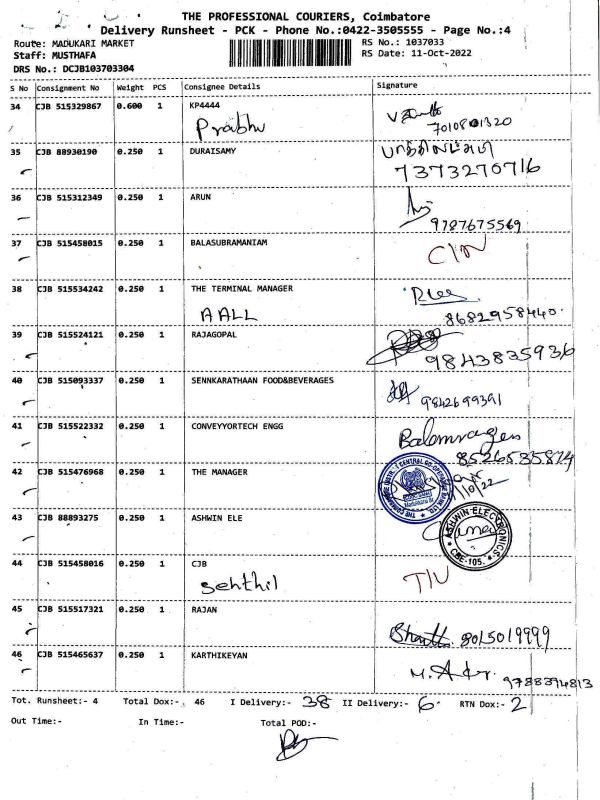 THE PROFESSIONAL COURIERS, Coimbatore
Delivery Runsheet - PCK - Phone No.:0422-3505555 - Page No.:4
Route: MADUKARI MARKET RS No.: 1037033
Staff: MUSTHAFA RS Date: 11-Oct-2022
DRS No.: DCJB103703304
S No Consignment No Weight PCS Consignee Details Signature
34 CJB 515329867 0.600 1 KP4444
Prabhu 7010801320
35 CJB 88930190 0.250 1 DURAISAMY
7373270716
36 CJB 515312349 0.250 1 ARUN
9787675569
37 CJB 515458015 0.250 1 BALASUBRAMANIAM
38 CJB 515534242 0.250 1 THE TERMINAL MANAGER
AALL 8682958440.
39 CJB 515524121 0.250 1 RAJAGOPAL
9843835936
40 CJB 515093337 0.250 1 SENNKARATHAAN FOOD&BEVERAGES
9842699391
41 CJB 515522332 0.250 1 CONVEYYORTECH ENGG
8526535874
42 CJB 515476968 0.250 1 THE MANAGER
43 CJB 88893275 0.250 1 ASHWIN ELE
ASHWIN ELECTRONICS
CBE-105.
44 CJB 515458016 0.250 1 CJB
Sehthil
45 CJB 515517321 0.250 1 RAJAN
8015019999
46 CJB 515465637 0.250 1 KARTHIKEYAN
9788394813
Tot. Runsheet:- 4 Total Dox:- 46 I Delivery:- 38 II Delivery:- 6 RTN Dox:- 2
Out Time:- In Time:- Total POD:-